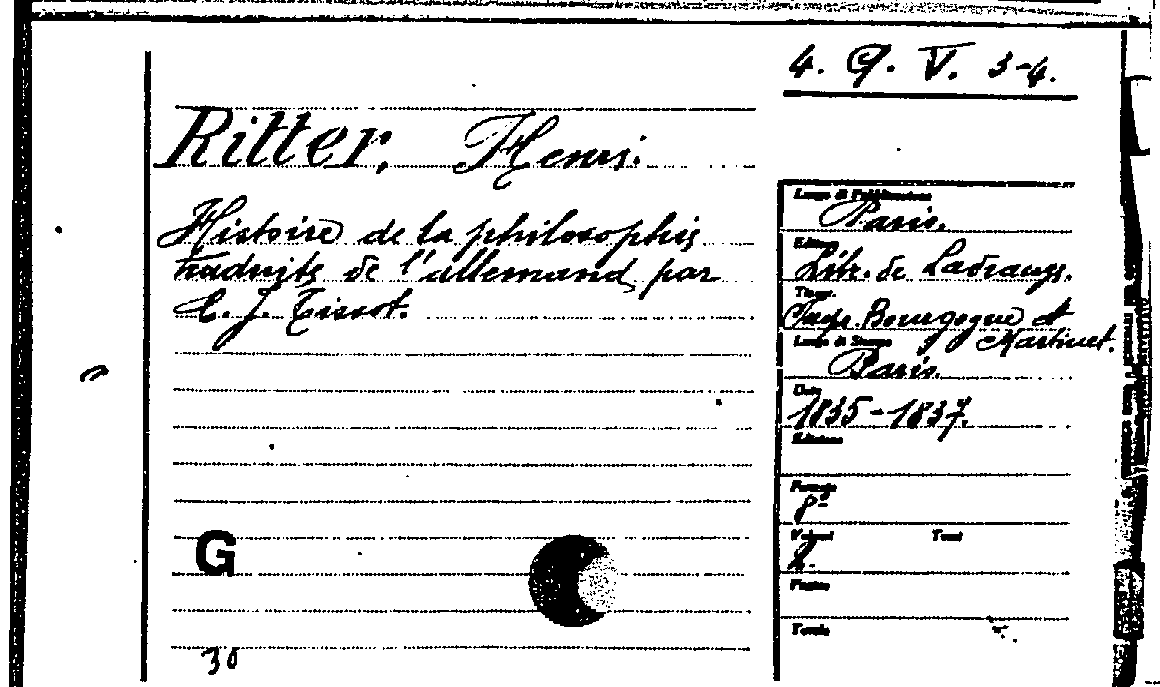 4. G. V. 3-4.
Ritter, Henri.
Histoire de la philosophie
traduite de l'allemand par
C. J. Tissot.
Luogo di Pubblicazione
Paris.
Editore
Libr. de Ladrange.
Tipogr.
Impr. Bourgogne et
Martinet.
Luogo di Stampa
Paris.
Data
1835-1837.
Edizione
Formato
8º
Volumi Tomi
Tavole
G
30